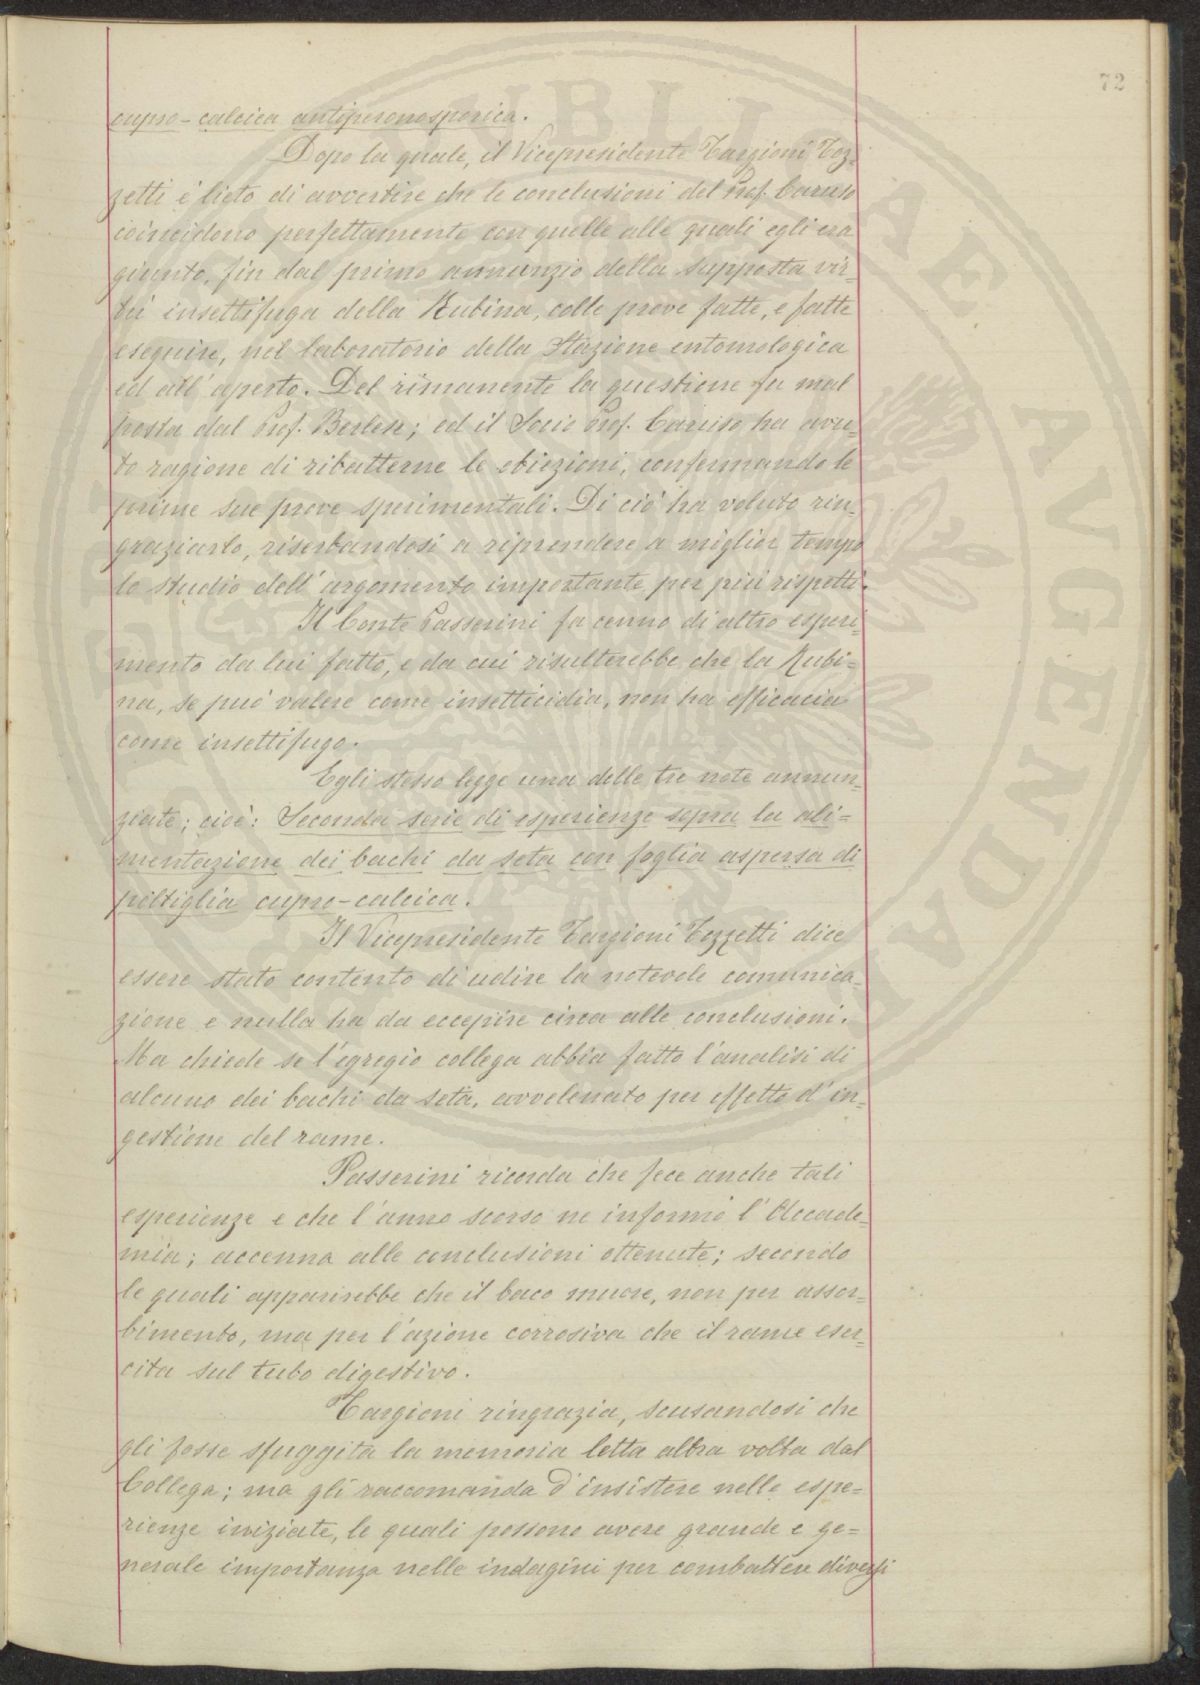 72
cupro-calcica antiperonosporica.
Dopo la quale, il Vicepresidente Targioni Toz-
zetti è lieto di avvertire che le conclusioni del Prof. Caruso
coincidono perfettamente con quelle alle quali egli era
giunto, fin dal primo annunzio della supposta vir-
tù insettifuga della Rubina, colle prove fatte, e fatte
eseguire, nel laboratorio della Stazione entomologica
ed all'aperto. Del rimanente la questione fu mal
posta dal Prof. Berlese; ed il Socio Prof. Caruso ha avu-
to ragione di ribatterne le obiezioni, confermando le
prime sue prove sperimentali. Di ciò ha voluto rin-
graziarlo, riserbandosi a riprendere a miglior tempo
lo studio dell'argomento importante per più rispetti.
Il Conte Passerini fa cenno di altro esperi-
mento da lui fatto, e da cui risulterebbe che la Rubi=
na, se può valere come insetticidia, non ha efficacia
come insettifugo.
Egli stesso legge una delle tre note annun-
ziate; cioè: Seconda serie di esperienze sopra la ali=
mentazione dei bachi da seta con foglia aspersa di
poltiglia cupro-calcica.
Il Vicepresidente Targioni Tozzetti dice
essere stato contento di udire la notevole comunica-
zione e nulla ha da eccepire circa alle conclusioni.
Ma chiede se l'egregio collega abbia fatto l'analisi di
alcuno dei bachi da seta, avvelenato per effetto d'in-
gestione del rame.
Passerini ricorda che fece anche tali
esperienze e che l'anno scorso ne informò l'Accade-
mia; accenna alle conclusioni ottenute; secondo
le quali apparirebbe che il baco muore, non per assor-
bimento, ma per l'azione corrosiva che il rame eser-
cita sul tubo digestivo.
Targioni ringrazia, scusandosi che
gli fosse sfuggita la memoria letta altra volta dal
Collega; ma gli raccomanda d'insistere nelle espe=
rienze iniziate, le quali possono avere grande e ge=
nerale importanza nelle indagini per combattere diversi